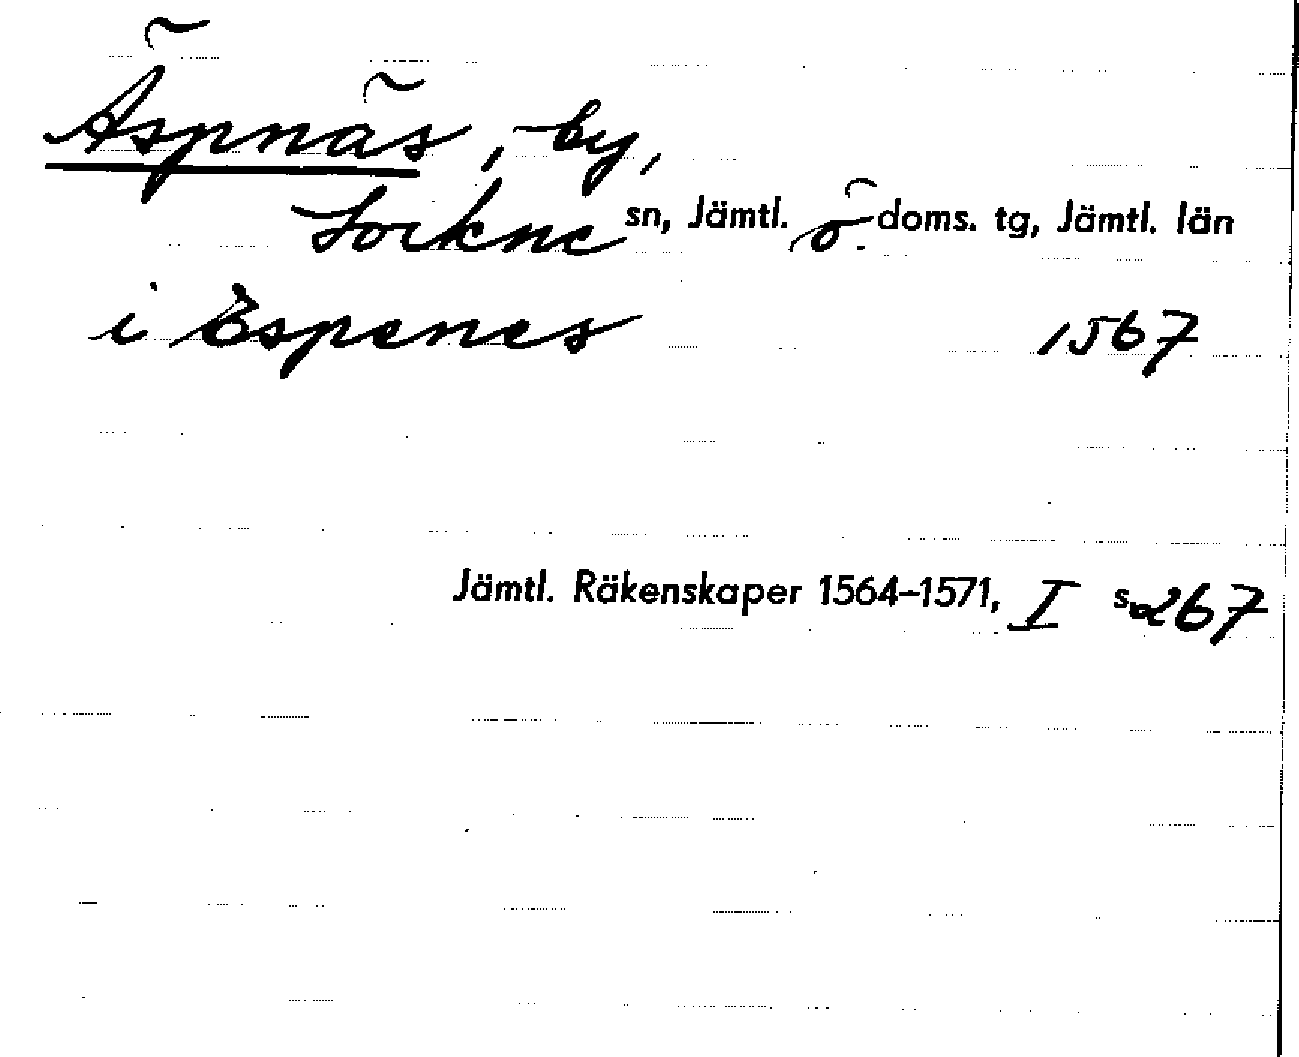 Äspnäs, by,
Lockne sn, Jämtl. ö. doms. tg, Jämtl. län
i Espenes 1567
Jämtl. Räkenskaper 1564-1571, I s. 267